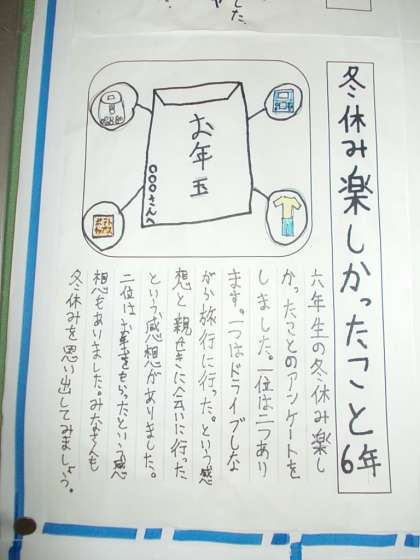 冬休み楽しかったこと 6年
お年玉
○○○さんへ
ポテト
チップス
六年生の冬休み楽し
かったことのアンケートを
しました。一位は二つあり
ます。一つはドライブしな
がら旅行に行った。という感
想と親せきに会いに行った
という感想がありました。
二位はお年玉をもらったという感
想もありました。みなさんも
冬休みを思い出してみましょう。